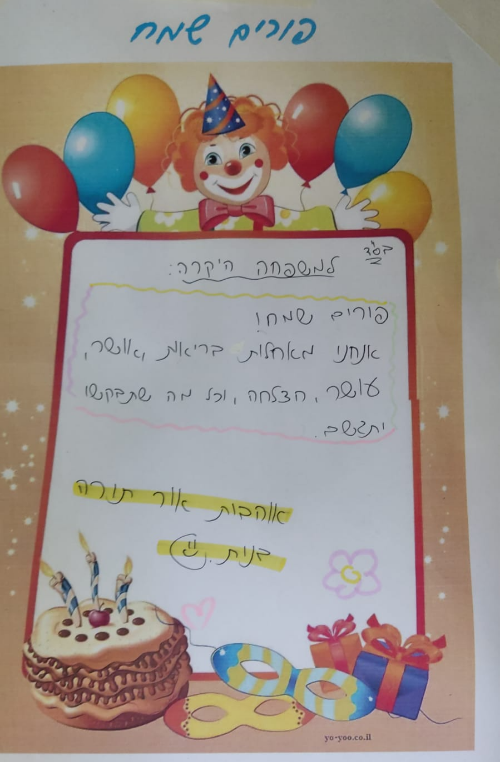 פורים שמח
בס"ד
למשפחה היקרה:
פורים שמח!
אנחנו מאחלות בריאות, אושר,
עושר, הצלחה, וכל מה שתבקשו
יתגשם.
אוהבות אור תורה
בנות
yo-yoo.co.il